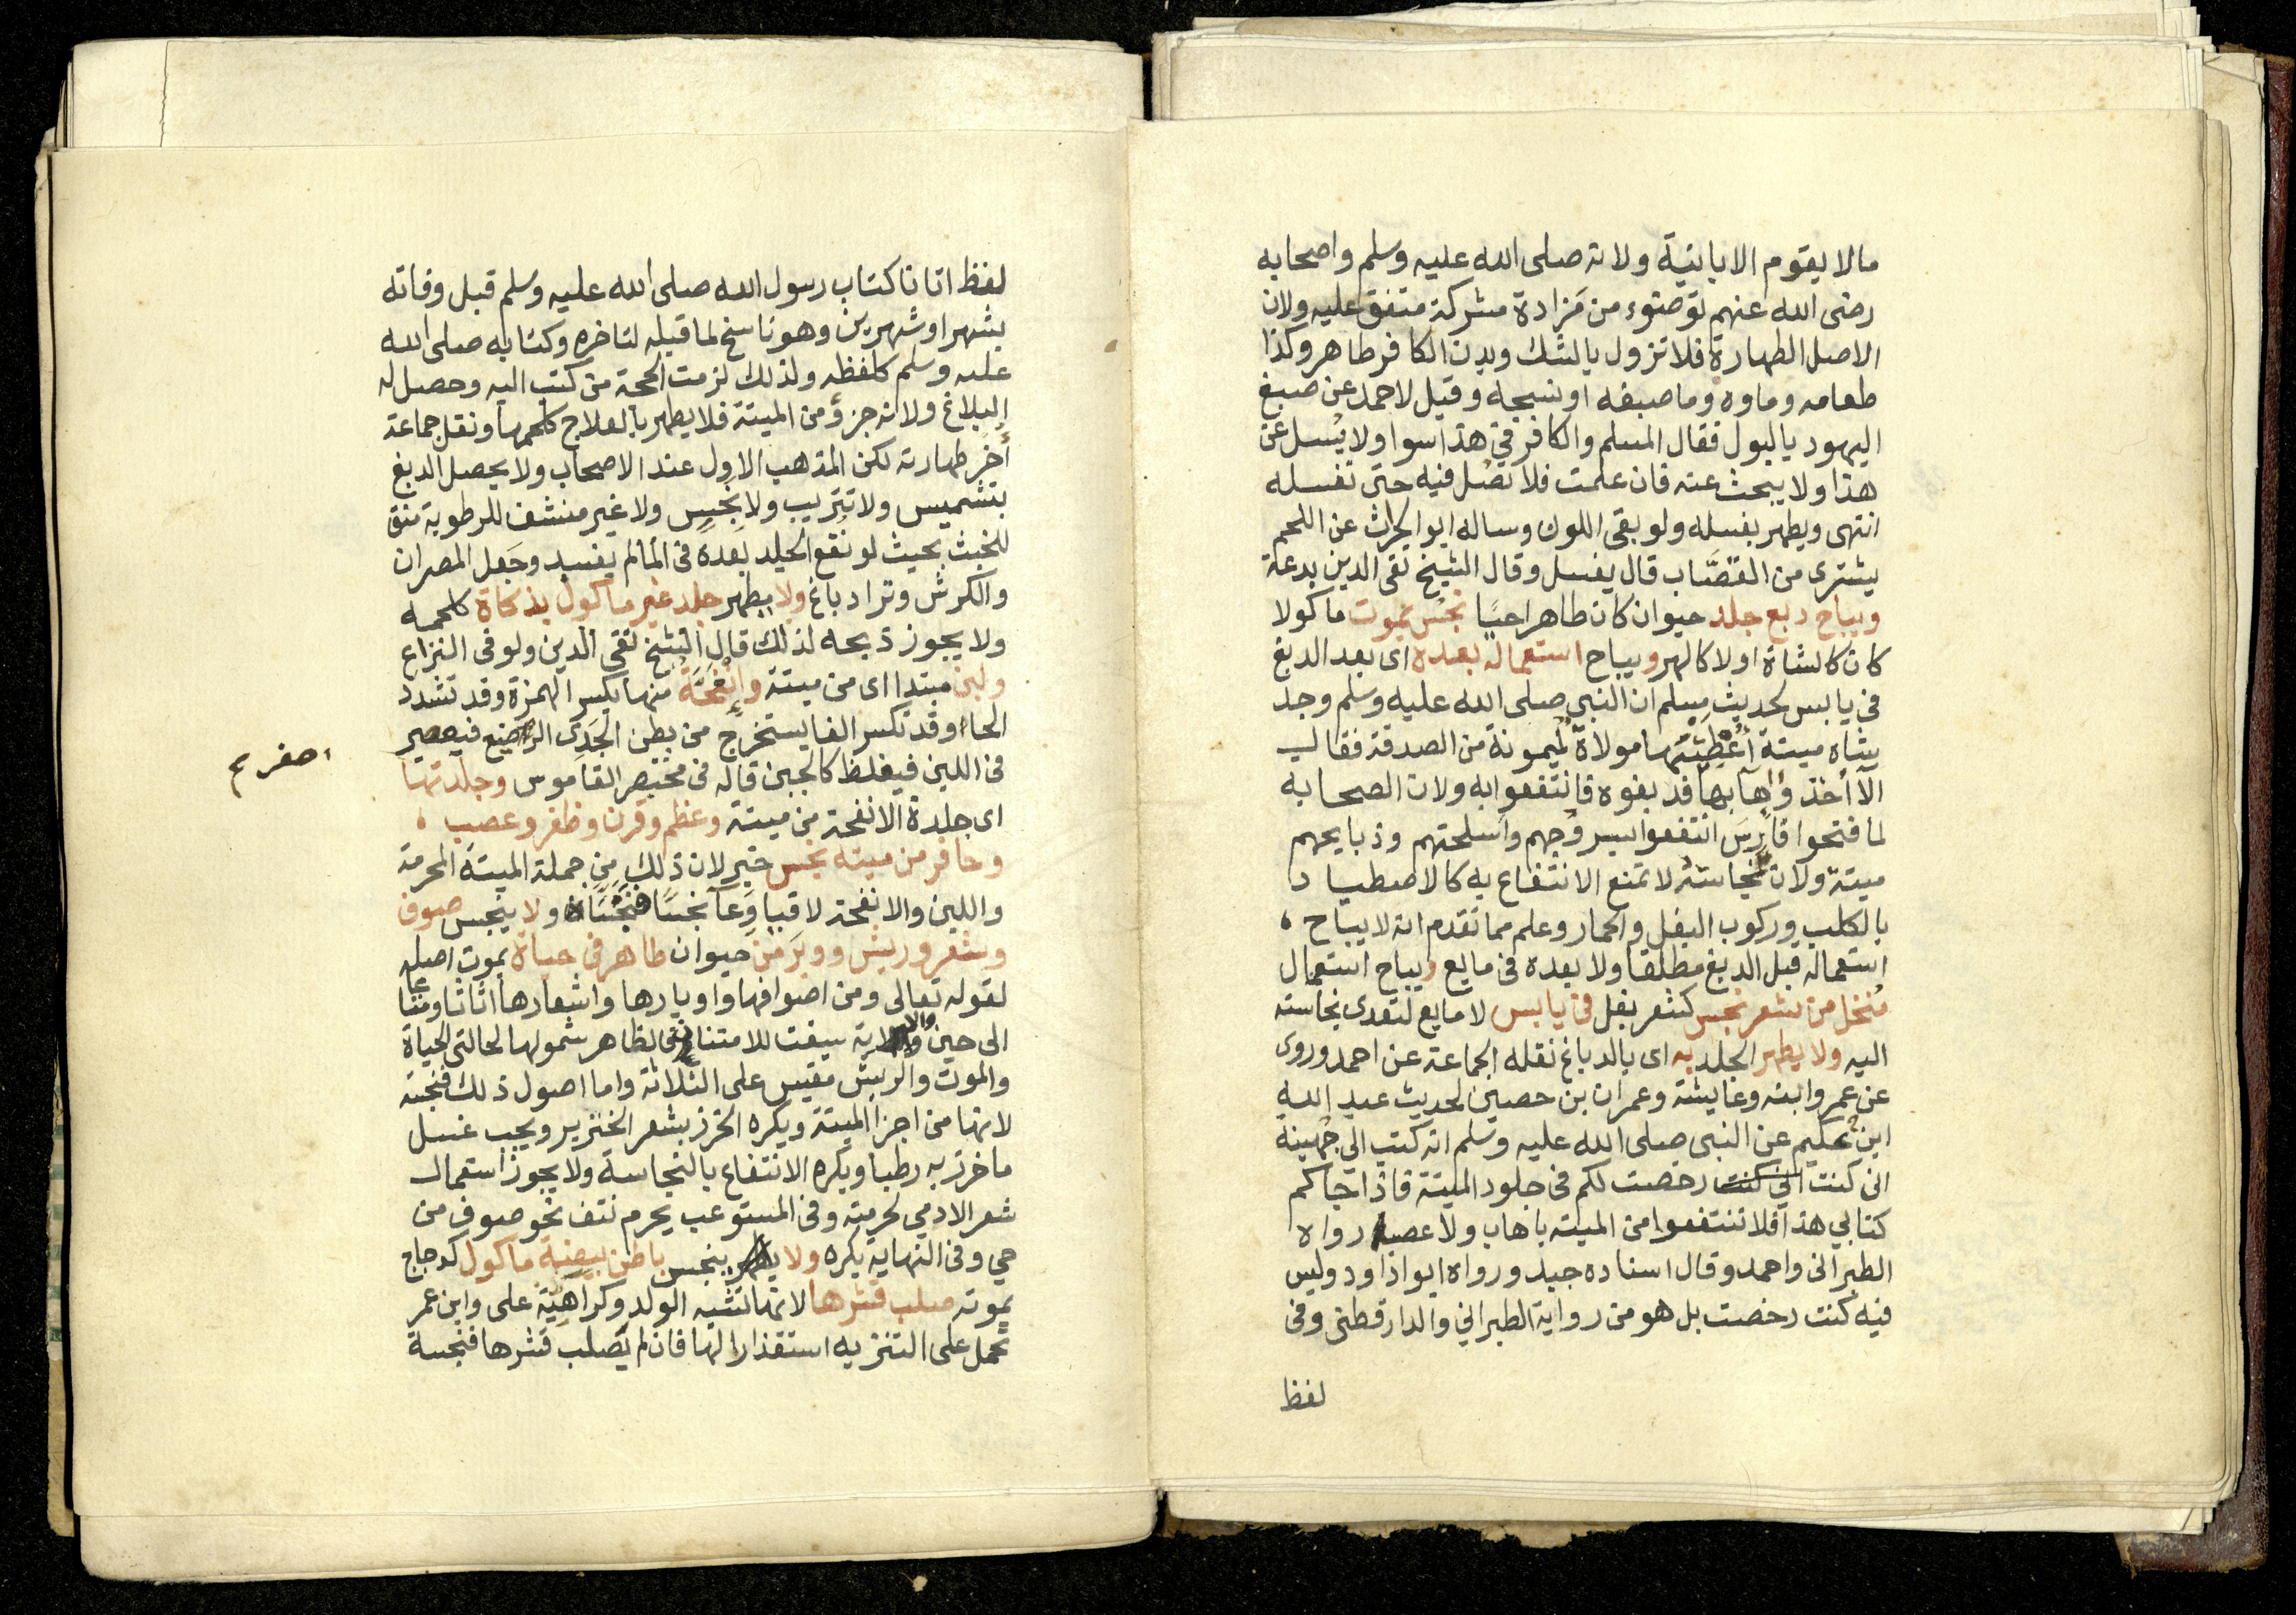 مالا يقوم الا بانية ولانه صلى الله عليه وسلم واصحابه
رضى الله عنهم توضوء من مَزادة مشركة متفق عليه ولان
الاصل الطهارة فلا تزول بالشك وبدن الكافر طاهر وكذا
طعامه وماوه وما صبغه او نسجه وقيل لاحمد عن صبغ
اليهود بالبول فقال المسلم والكافر في هذا سوا ولا يُسل عن
هذا ولا يبحث عنه فان علمت فلا تصُل فيه حتى تغسله
انتهى ويطهر بغسله ولو بقى اللون وساله ابو الحرث عن اللحم
يشترى من القصَّاب قال يغسل وقال الشيخ تقى الدين بدعة
ويباح دبغ جلد حيوان كان طاهرا حيًا نجُس بموت ماكولا
كان كالشاة اولا كالهر ويباح استعماله بعده اى بعد الدبغ
فى يابس لحديث مسلم ان النبي صلى الله عليه وسلم وجد
شاه ميتة أُعْطِيَتْها مولاةٌ لميمونة من الصدقة فقال
ألا أخذوا إهابها فدبغوه فانتفعوا به ولان الصحابه
لما فتحوا فارِسَ انتفعوا بسروجهم واسلحتهم وذبايحهم
ميتة ولان نجاسته لا تمنع الانتفاع به كالاصطياد
بالكلب وركوب البغل والحمار وعلم مما تقدم انه لا يباح
استعماله قبل الدبغ مطلقا ولا بعده فى مايع ويباح استعمال
مُنخل من شعر نجس كشعر بغل فى يابس لا مايع لتعدى نجاسته
اليه ولا يطهر الجلد به اى بالدباغ نقله الجماعة عن احمد وروى
عن عمر وابنه وعايشة وعمران بن حصين لحديث عبد الله
ابن عُكيم عن النبى صلى الله عليه وسلم انه كتب الى جُهينة
انى كنت انى كنت رخصت لكم فى جلود الميتة فاذا جاكم
كتابي هذا فلا تنتفعوا من الميته باهاب ولا عصب رواه
الطبرانى واحمد وقال اسناده جيد ورواه ابو اداود وليس
فيه كنت رخصت بل هو من رواية الطبراني والدارقطنى وفى
لفظ
لفظ اتانا كتاب رسول الله صلى الله عليه وسلم قبل وفاته
بشهر او شهرين وهو ناسخ لما قبله لتاخره وكتابه صلى الله
عليه وسلم كلفظه ولذلك لزمت الحجة من كتب اليه وحصل له
البلاغ ولانه جزوٌ من الميتة فلا يطهر بالعلاج كلحمها ونقل جماعة
أخر طهارته لكن المذهب الاول عند الاصحاب ولا يحصل الدبغ
بتشميس ولا تتريب ولا بنجس ولا غير منشف للرطوبة منق
للخبث بحيث لو نُقع الجلد بعده فى الما لم يفسد وجَعل المصران
والكرش وترا دباغ ولا يطهر جلد غير ماكول بذكاة كلحمه
ولا يجوز ذبحه لذلك قال الشيخ تقى الدين ولو فى النزاع
ولبن مبتدا اى من ميتة وإِنْفَحَّة منها بكسر الهمزة وقد تشدد
الحا وقد تكسر الفا يستخرج من بطن الجَدِى الرضيع فيصير
اصفر م
فى اللبن فيغلظ كالجبن قاله فى مختصر القاموس وجلدتها
اى جلدة الانفحة من ميتة وعظم وقرن وظفر وعصب
وحافر من ميته نجس خبر لان ذلك من جملة الميتة المحرمة
واللبن والانفحة لاقيا وعآ نجسًا فنجُسَا ولا ينجس صوف
وشعر وريش ووبر من حيوان طاهر فى حياة بموت اصله
لقوله تعالى ومن اصوافها واوبارها واشعارها اثاثا ومتاعا
الى حين والاية سيقت للامتنان فالظاهر شمولها لحالتى الحياة
والموت والريش مقيس على الثلاثة واما اصول ذلك فنجسة
لانها من اجزا الميتة ويكره الخرز بشعر الخنزير ويجب غسل
ما خرز به رطبا ويكره الانتفاع بالنجاسة ولا يجوز استعمال
شعر الادمي لحرمته وفى المستوعب يحرم نتف نحو صوف من
حي وفى النهاية يكره ولا ينجس باطن بيضة ماكول كدجاج
بموته صلب قشرها لانها تشبه الولد وكراهيّة على وابن عمر
تحمل على التنزيه استقذارا لها فان لم يَصلب قشرها فنجسة